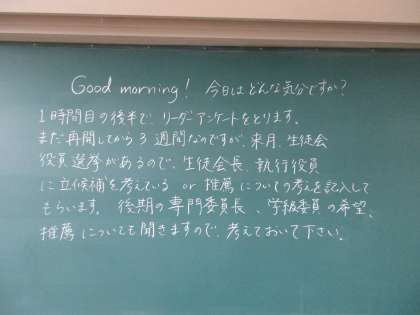 Good morning! 今日はどんな気分ですか?
1時間目の後半で、リーダーアンケートをとります。
まだ再開してから3週間なのですが、来月、生徒会
役員選挙があるので、生徒会長、執行役員
に立候補を考えている or 推薦についての考えを記入して
もらいます。後期の専門委員長、学級委員の希望、
推薦についても聞きますので、考えておいて下さい。